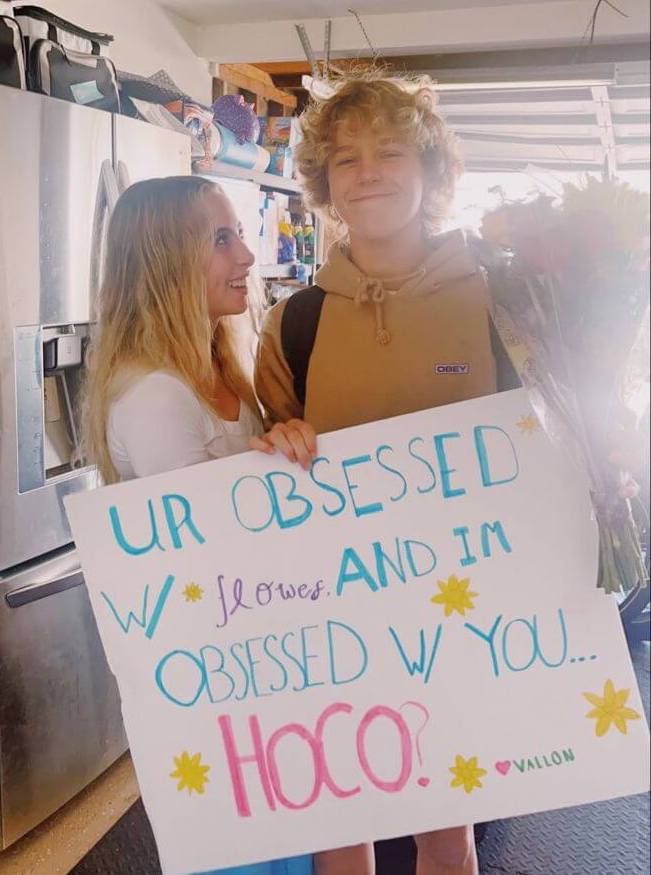 OBEY
UR OBSESSED
W/ flowes. AND IM
OBSESSED W/ YOU...
HOCO?
VALLON